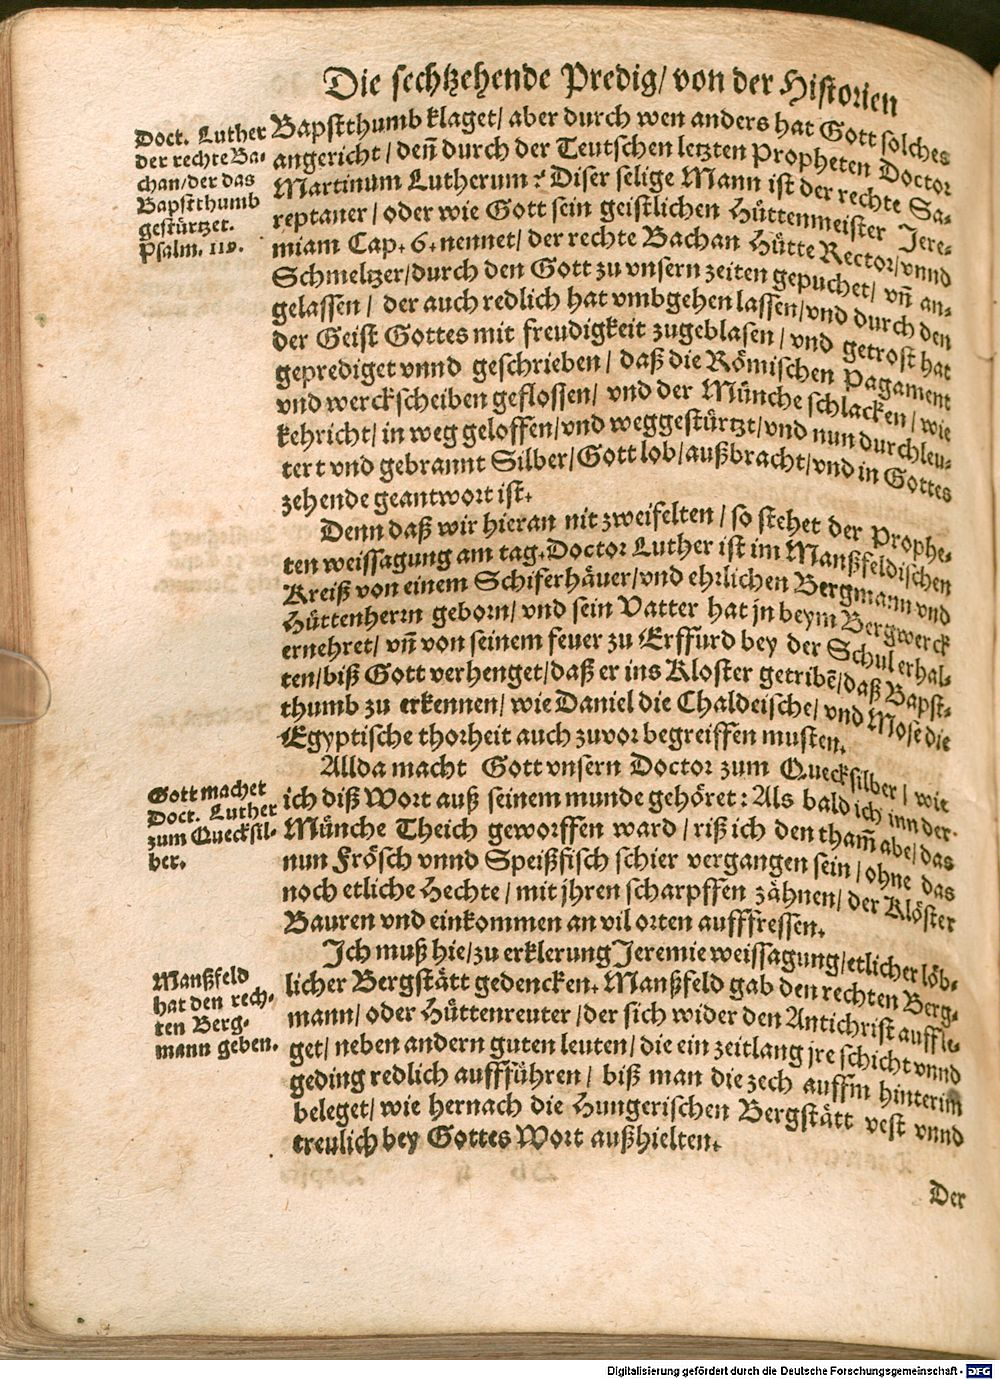 Die sechtzehende Predig/ von der Historien
Doct. Luther
der rechte Ba-
chan/der das
Bapstthumb
gestürtzet.
Psalm. 119.
Bapstthumb klaget/ aber durch wen anders hat Gott solches
angericht/ deñ durch der Teutschen letzten Propheten Doctor
Martinum Lutherum? Diser selige Mann ist der rechte Sa-
reptaner/ oder wie Gott sein geistlichen Hüttenmeister Jere-
miam Cap. 6. nennet/ der rechte Bachan Hütte Rector/ vnnd
Schmeltzer/durch den Gott zu vnsern zeiten gepuchet/ vñ an-
gelassen/ der auch redlich hat vmbgehen lassen/vnd durch den
der Geist Gottes mit freudigkeit zugeblasen/ vnd getrost hat
geprediget vnnd geschrieben/ daß die Römischen Pagament
vnd werckscheiben geflossen/ vnd der Münche schlacken/ wie
kehricht/ in weg geloffen/vnd weggestürtzt/vnd nun durchleu-
tert vnd gebrannt Silber/Gott lob/außbracht/vnd in Gottes
zehende geantwort ist.
Denn daß wir hieran nit zweifelten/ so stehet der Prophe-
ten weissagung am tag. Doctor Luther ist im Manßfeldischen
Kreiß von einem Schiferhäuer/vnd ehrlichen Bergmann vnd
Hüttenherrn geborn/ vnd sein Vatter hat jn beym Bergwerck
ernehret/ vñ von seinem feuer zu Erffurd bey der Schul erhal-
ten/biß Gott verhenget/daß er ins Kloster getribē/daß Bapst-
thumb zu erkennen/ wie Daniel die Chaldeische/ vnd Mose die
Egyptische thorheit auch zuvor begreiffen musten.
Gott machet
Doct. Luther
zum Quecksil-
ber.
Allda macht Gott vnsern Doctor zum Quecksilber/ wie
ich diß Wort auß seinem munde gehöret: Als bald ich inn der
Münche Theich geworffen ward/ riß ich den tham̃ abe/ das
nun Frösch vnnd Speißfisch schier vergangen sein/ ohne das
noch etliche Hechte/ mit jhren scharpffen zähnen/ der Klöster
Bauren vnd einkommen an vil orten aufffressen.
Manßfeld
hat den rech-
ten Berg-
mann geben.
Ich muß hie/zu erklerung Jeremie weissagung/etlicher löb-
licher Bergstätt gedencken. Manßfeld gab den rechten Berg-
mann/ oder Hüttenreuter/der sich wider den Antichrist auffle-
get/ neben andern guten leuten/ die ein zeitlang jre schicht vnnd
geding redlich auffführen/ biß man die zech auffm hinterim
beleget/ wie hernach die Hungerischen Bergstätt vest vnnd
treulich bey Gottes Wort außhielten.
Der
Digitalisierung gefördert durch die Deutsche Forschungsgemeinschaft - DFG